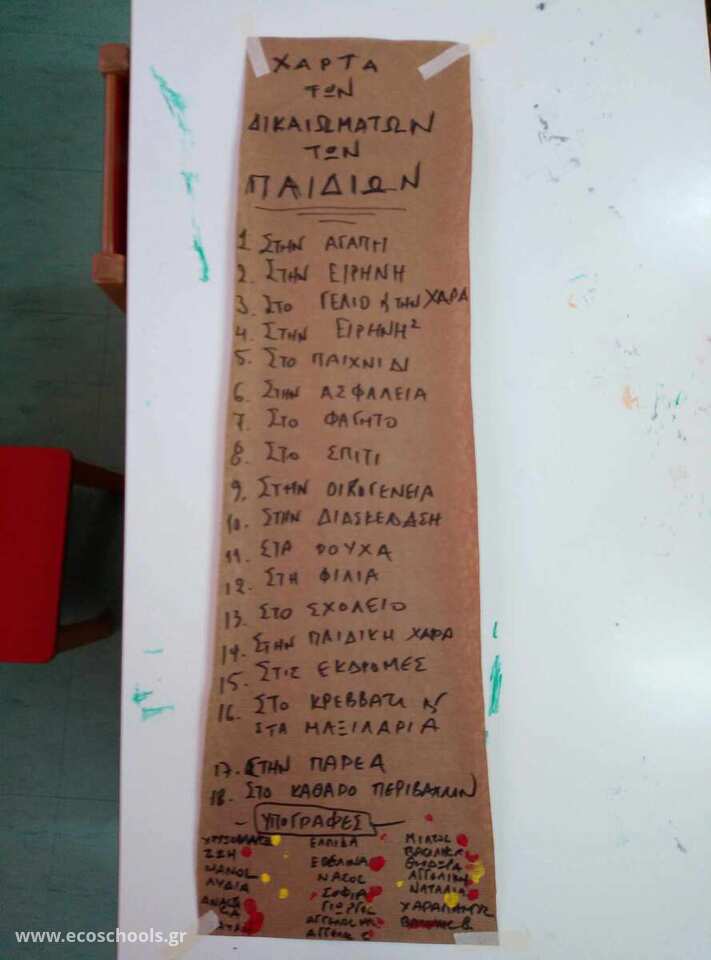 ΧΑΡΤΑ
ΤΩΝ
ΔΙΚΑΙΩΜΑΤΩΝ
ΤΩΝ
ΠΑΙΔΙΩΝ
1. ΣΤΗΝ ΑΓΑΠΗ
2. ΣΤΗΝ ΕΙΡΗΝΗ
3. ΣΤΟ ΓΕΛΙΟ & ΤΗΝ ΧΑΡΑ
4. ΣΤΗΝ ΕΙΡΗΝΗ²
5. ΣΤΟ ΠΑΙΧΝΙΔΙ
6. ΣΤΗΝ ΑΣΦΑΛΕΙΑ
7. ΣΤΟ ΦΑΓΗΤΟ
8. ΣΤΟ ΣΠΙΤΙ
9. ΣΤΗΝ ΟΙΚΟΓΕΝΕΙΑ
10. ΣΤΗΝ ΔΙΑΣΚΕΔΑΣΗ
11. ΣΤΑ ΡΟΥΧΑ
12. ΣΤΗ ΦΙΛΙΑ
13. ΣΤΟ ΣΧΟΛΕΙΟ
14. ΣΤΗΝ ΠΑΙΔΙΚΗ ΧΑΡΑ
15. ΣΤΙΣ ΕΚΔΡΟΜΕΣ
16. ΣΤΟ ΚΡΕΒΒΑΤΙ &
ΣΤΑ ΜΑΞΙΛΑΡΙΑ
17. ΣΤΗΝ ΠΑΡΕΑ
18. ΣΤΟ ΚΑΘΑΡΟ ΠΕΡΙΒΑΛΛΟΝ
ΥΠΟΓΡΑΦΕΣ
ΕΛΠΙΔΑ ΜΙΛΤΟΣ
ΖΩΗ ΕΒΕΛΙΝΑ ΒΑΣΙΛΙΚΗ
ΜΑΝΟΣ ΝΑΣΟΣ ΑΓΓΕΛΙΚΗ
ΛΥΔΙΑ ΣΟΦΙΑ ΝΑΤΑΛΙΑ
ΓΙΩΡΓΟΣ ΧΑΡΑΛΑΜΠΟΣ
ΑΓΓΕΛΟΣ
ΑΓΓΕΛΟΣ
www.ecoschools.gr